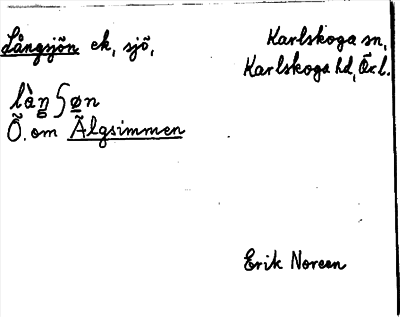 Långsjön ek, sjö,
Karlskoga sn,
Karlskoga hd, Ör.l.
là̊n̠ʃø̠n
Ö. om Älgsimmen
Erik Noreen